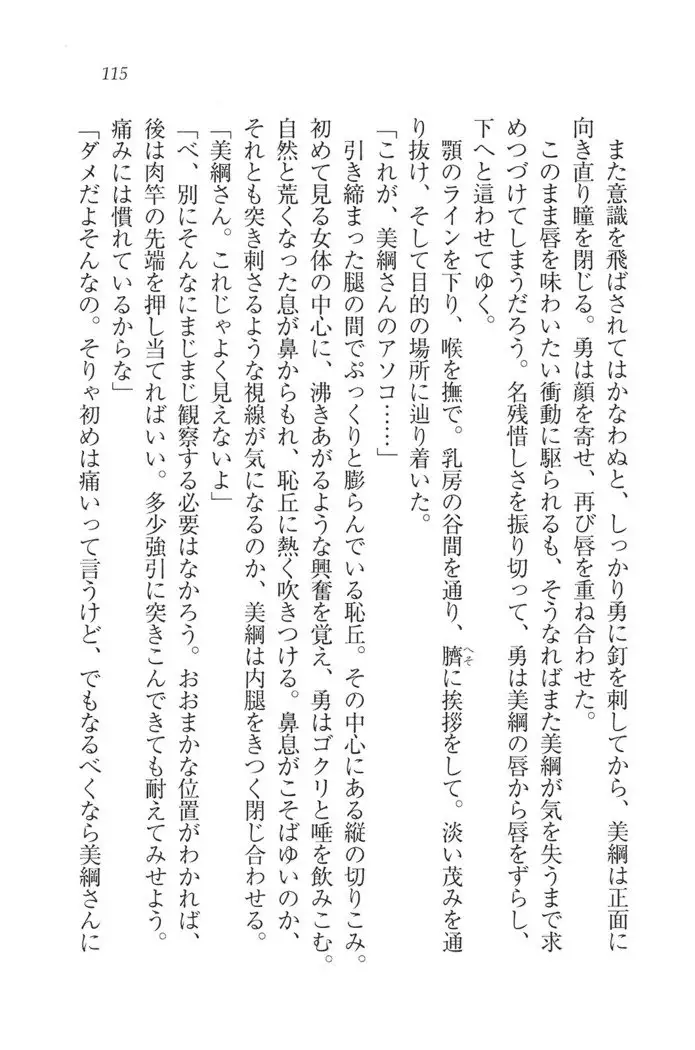 115
また意識を飛ばされてはかなわぬと、しっかり勇に釘を刺してから、美綱は正面に
向き直り瞳を閉じる。勇は顔を寄せ、再び唇を重ね合わせた。
このまま唇を味わいたい衝動に駆られるも、そうなればまた美綱が気を失うまで求
めつづけてしまうだろう。名残惜しさを振り切って、勇は美綱の唇から唇をずらし、
下へと這わせてゆく。
顎のラインを下り、喉を撫で。乳房の谷間を通り、臍に挨拶をして。淡い茂みを通
へそ
り抜け、そして目的の場所に辿り着いた。
「これが、美綱さんのアソコ……」
引き締まった腿の間でぷっくりと膨らんでいる恥丘。その中心にある縦の切りこみ。
初めて見る女体の中心に、沸きあがるような興奮を覚え、勇はゴクリと唾を飲みこむ。
自然と荒くなった息が鼻からもれ、恥丘に熱く吹きつける。鼻息がこそばゆいのか、
それとも突き刺さるような視線が気になるのか、美綱は内腿をきつく閉じ合わせる。
「美綱さん。これじゃよく見えないよ」
「べ、別にそんなにまじまじ観察する必要はなかろう。おおまかな位置がわかれば、
後は肉竿の先端を押し当てればいい。多少強引に突きこんできても耐えてみせよう。
痛みには慣れているからな」
「ダメだよそんなの。そりゃ初めは痛いって言うけど、でもなるべくなら美綱さんに